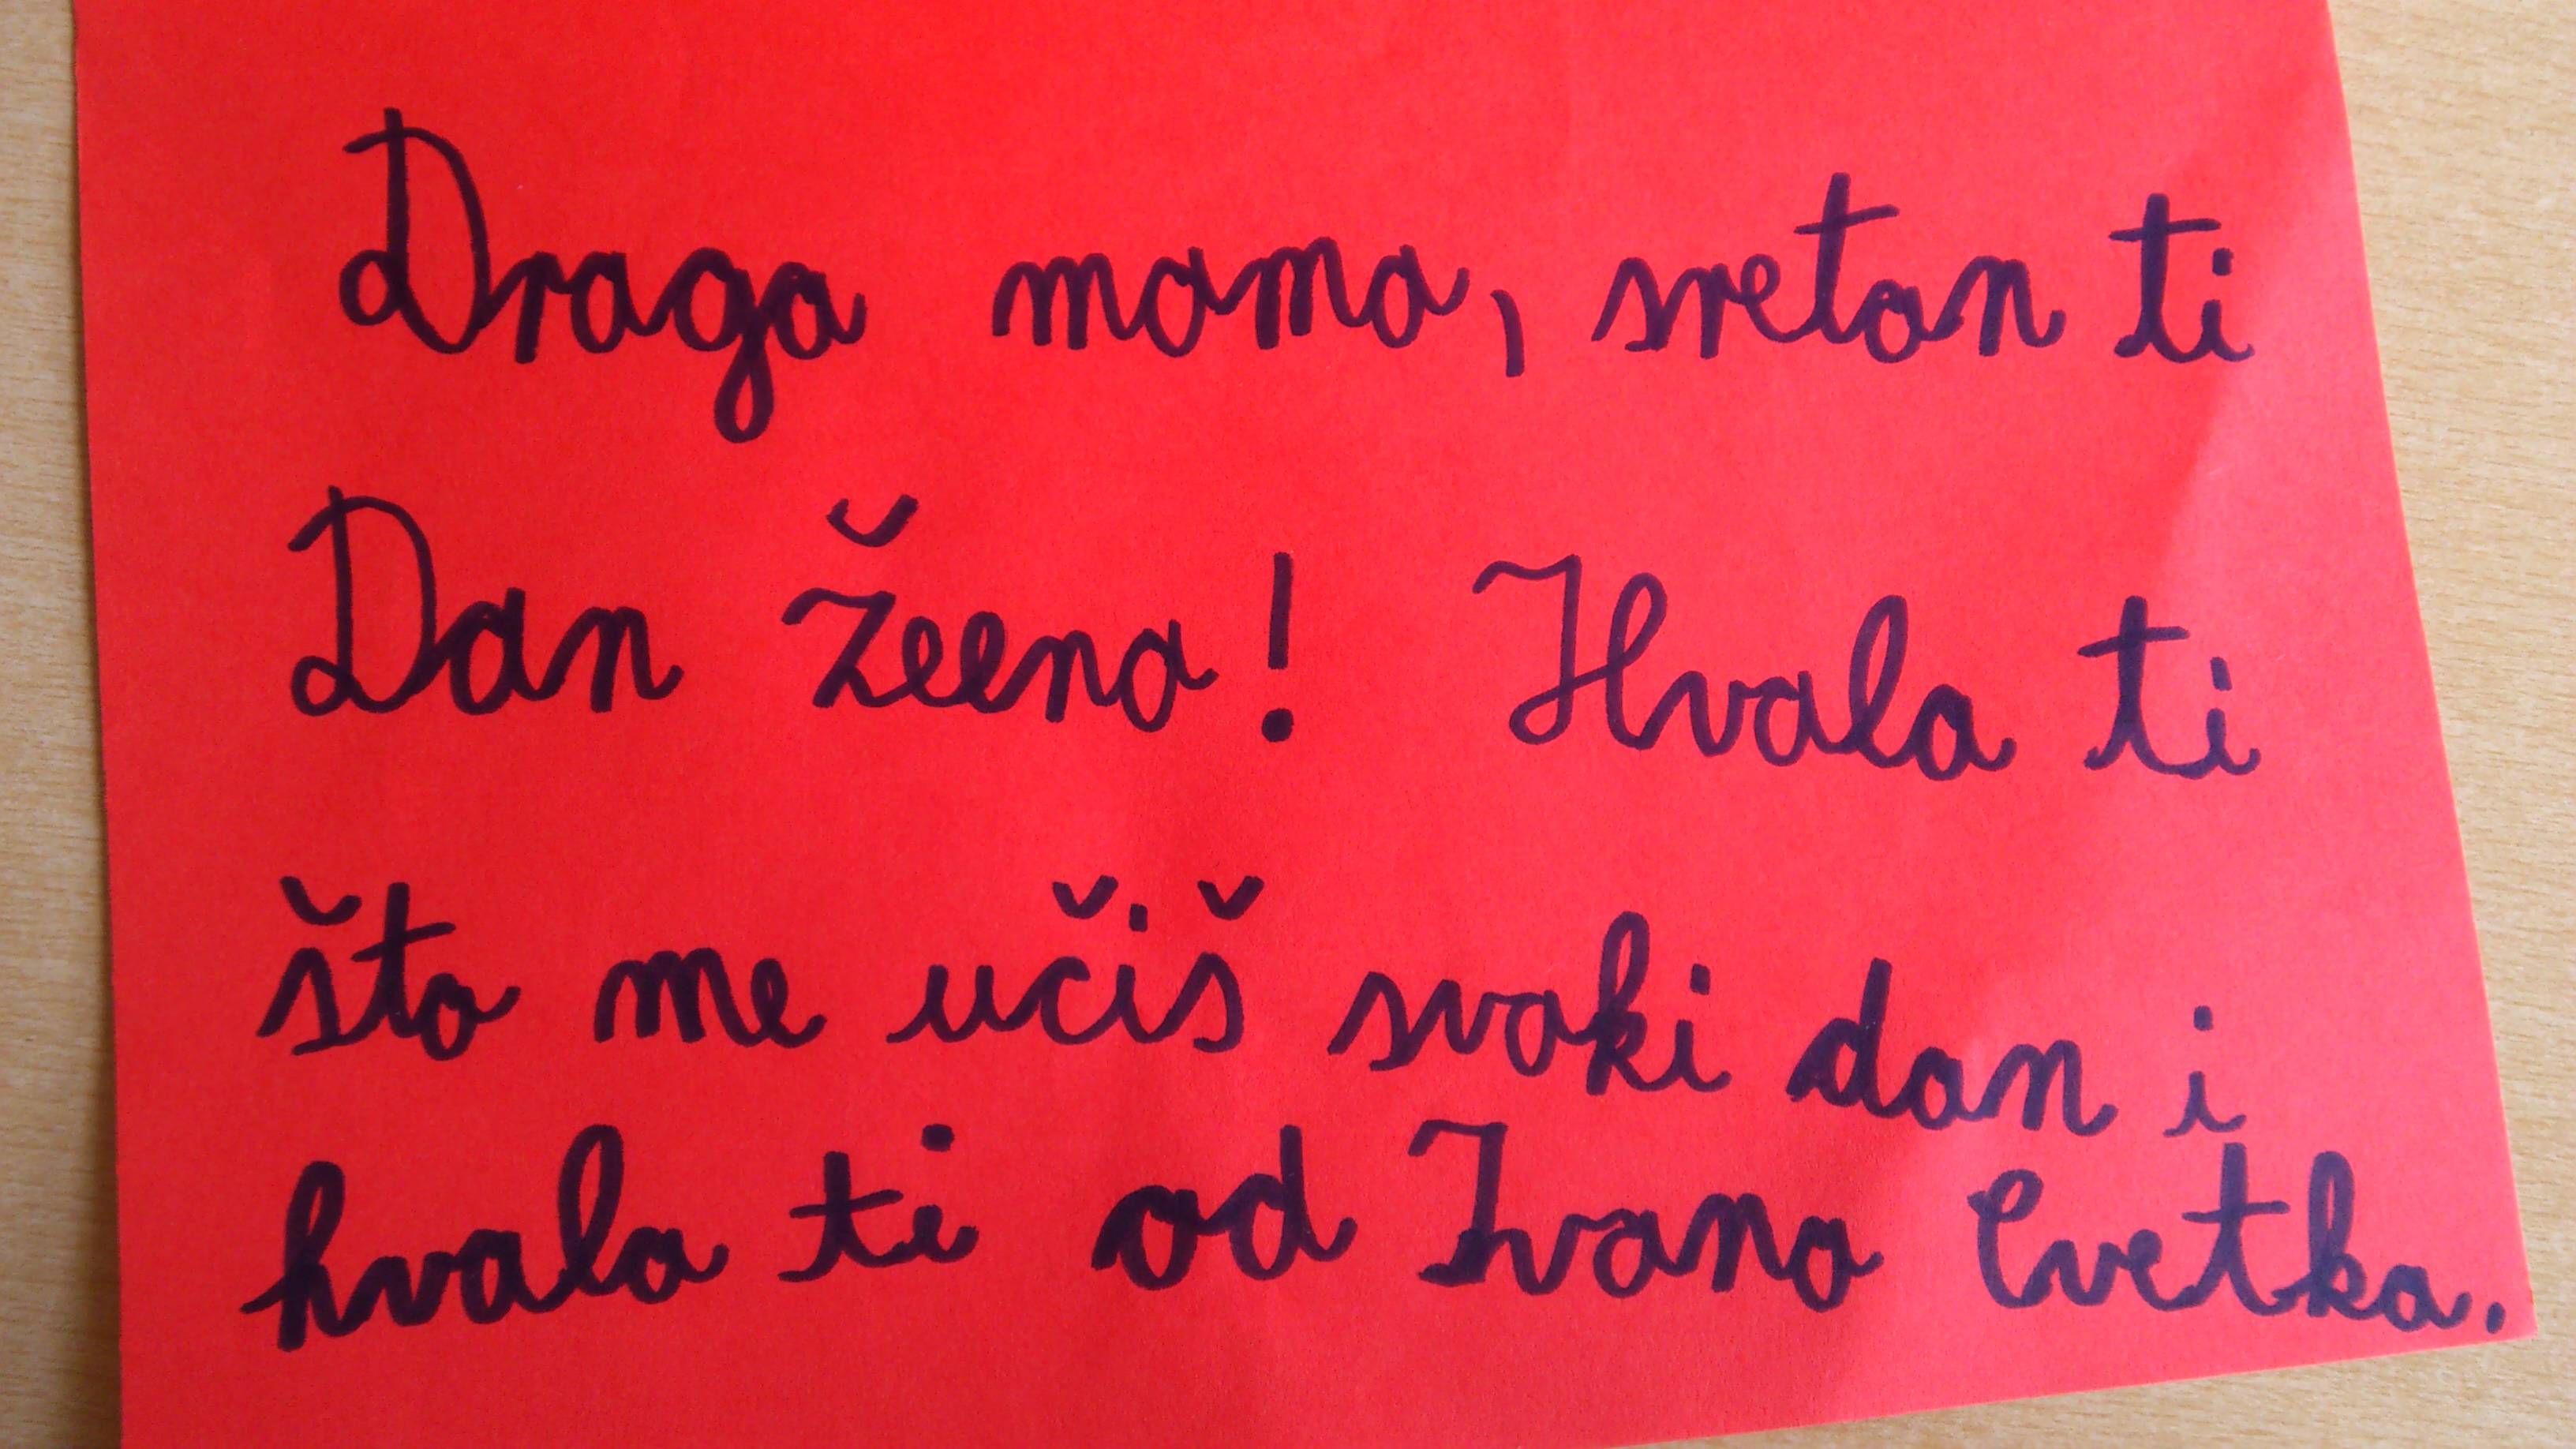 Draga mama, sretan ti
Dan žeena! Hvala ti
što me učiš svaki dan i
hvala ti od Ivana Cvetka.